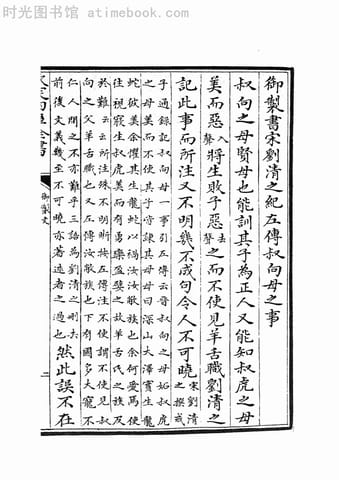 时光图书馆 · atimebook.com
御製書宋劉清之紀左傳叔向母之事
叔向之母賢母也能訓其子為正人又能知叔虎之母
美而惡入聲將生敗子惡去聲之而不使見羊舌職劉清之
記此事而所注又不明幾不成句令人不可曉宋劉清之撰戒
子通録記叔向母一事引左傳云晉叔向之母妬叔虎
之母美而不使其子皆諫其母母曰深山大澤實生龍
蛇彼美余懼其生龍蛇以禍汝汝敝族也余何愛焉使
往視寢生叔虎美而有勇欒盈嬖之故羊舌氏之族及
於難云云所注殊不明晰按左傳注不使謂不使見叔
向之父羊舌職也又左傳汝敝族也下有國多大寵不
仁人間之不亦難乎三語為劉清之刪去
前後文義幾至不可曉亦著述者之過也然此誤不在
御製文
二